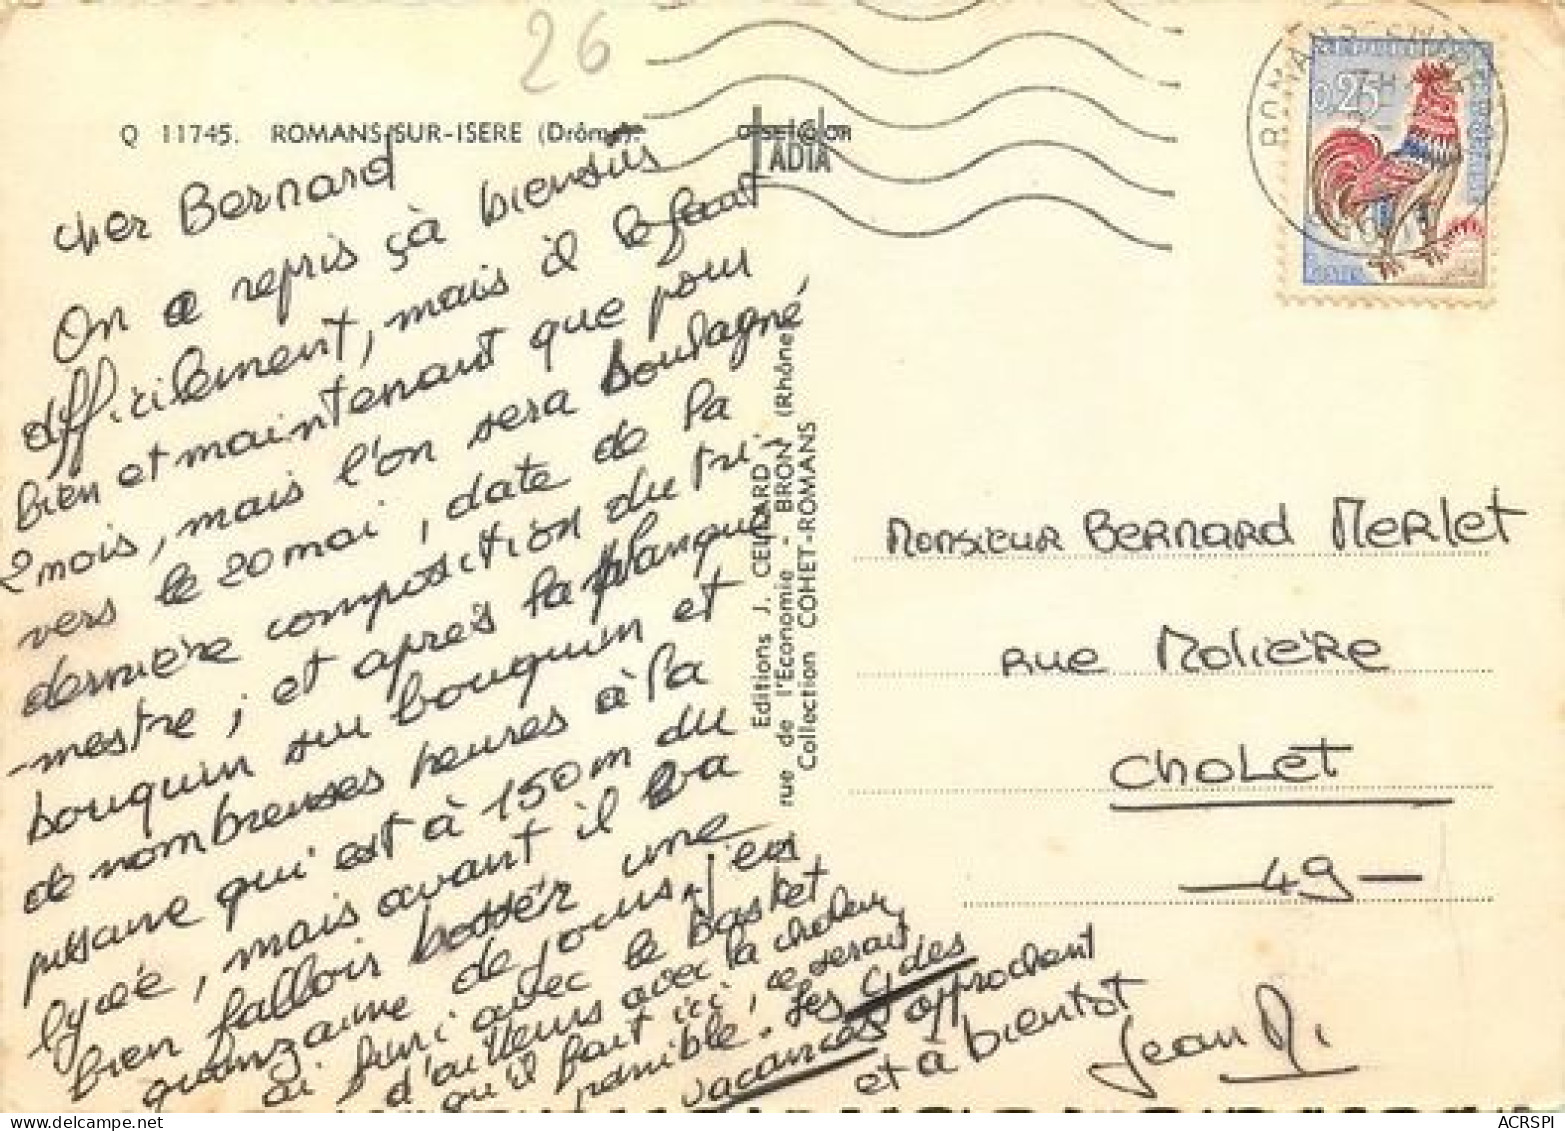 26
Q 11745. ROMANS-SUR-ISERE (Drôme).
offset color
IADIA
0,25
cher Bernard
On a repris çà biensûs
difficilement, mais il le faut
bien et maintenant que pour
2 mois, mais l'on sera soulagné,
vers le 20 mai, date de la
dernière composition du tri-
mestre ; et après la planque
bouquin sur bouquin et
de nombreuses heures à la
pissane qui est à 150 m du
lycée, mais avant il va
bien falloir bosser une
quinzaine de jours. J'en
ai fini avec le basket
d'ailleurs avec la chaleur
qu'il fait ici, ce serait
pénible. Les Gdes
vacances approchent
et à bientot
Jean M
Editions J. CELLARD
rue de l'Economie - BRON (Rhône)
Collection COHET-ROMANS
Monsieur Bernard Merlet
rue Molière
Cholet
- 49 -
ACRSPI